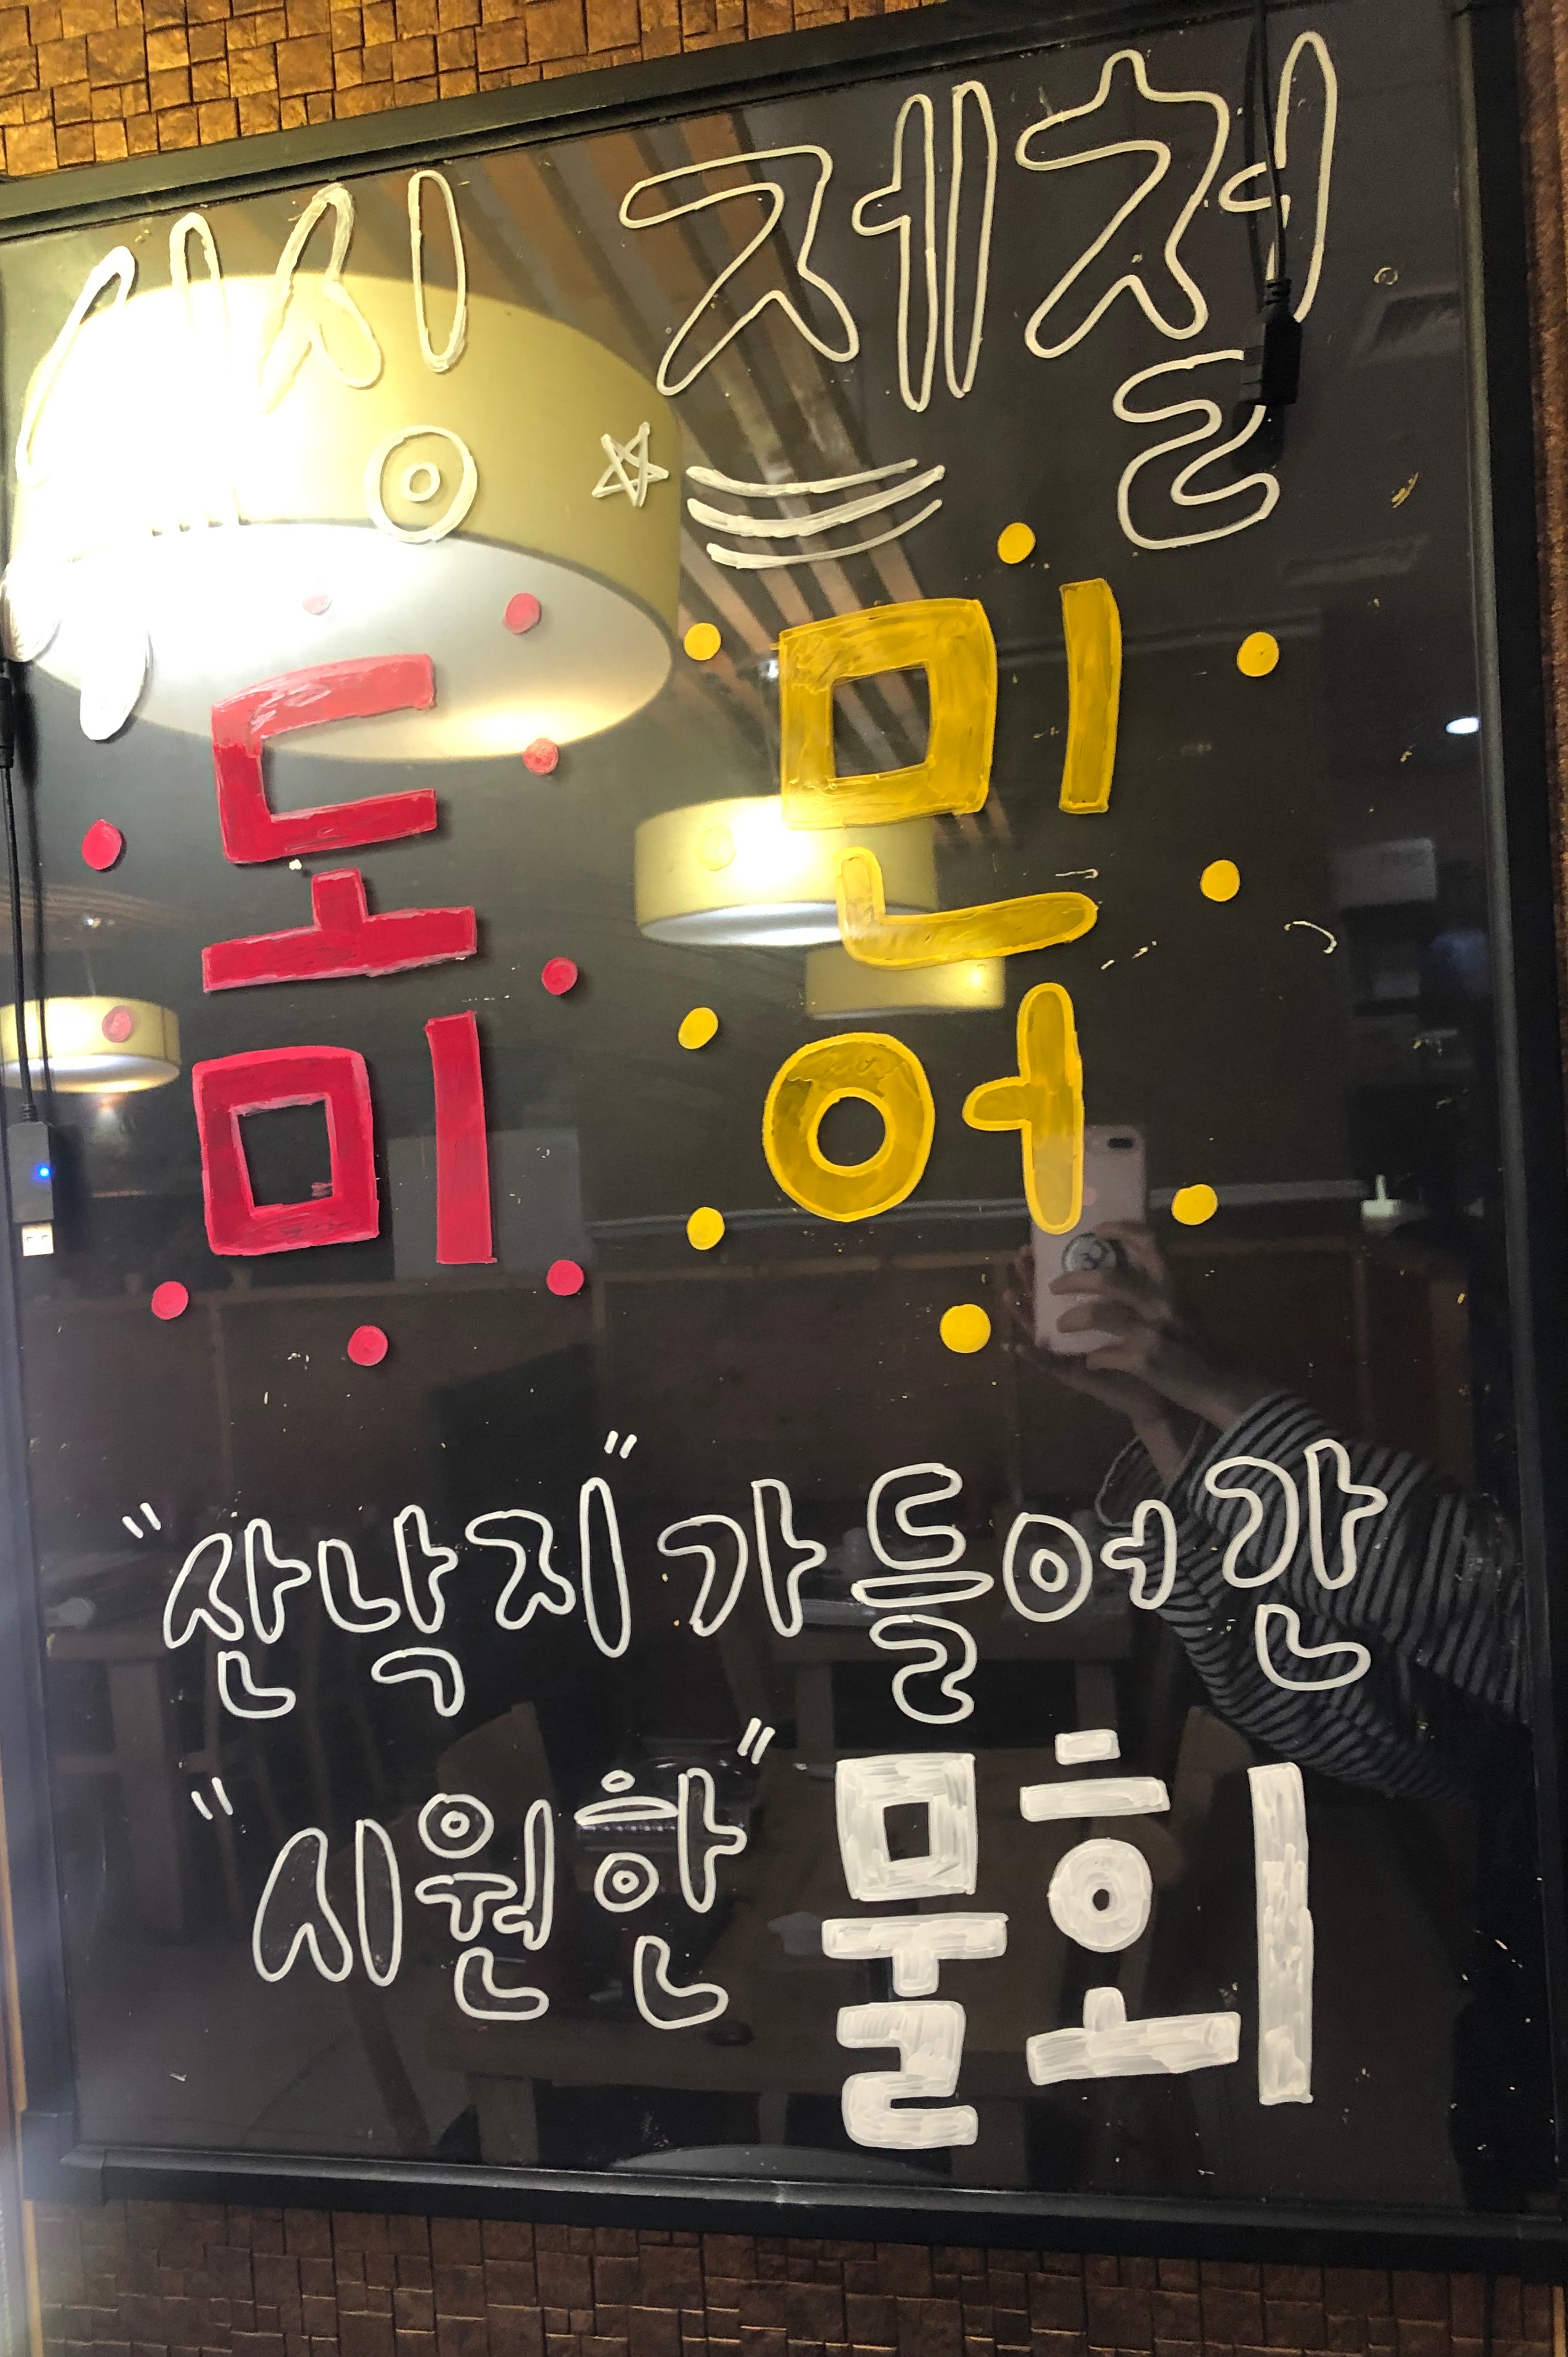 싱싱 제철
도미
민어
"산낙지"가 들어간
"시원한" 물회